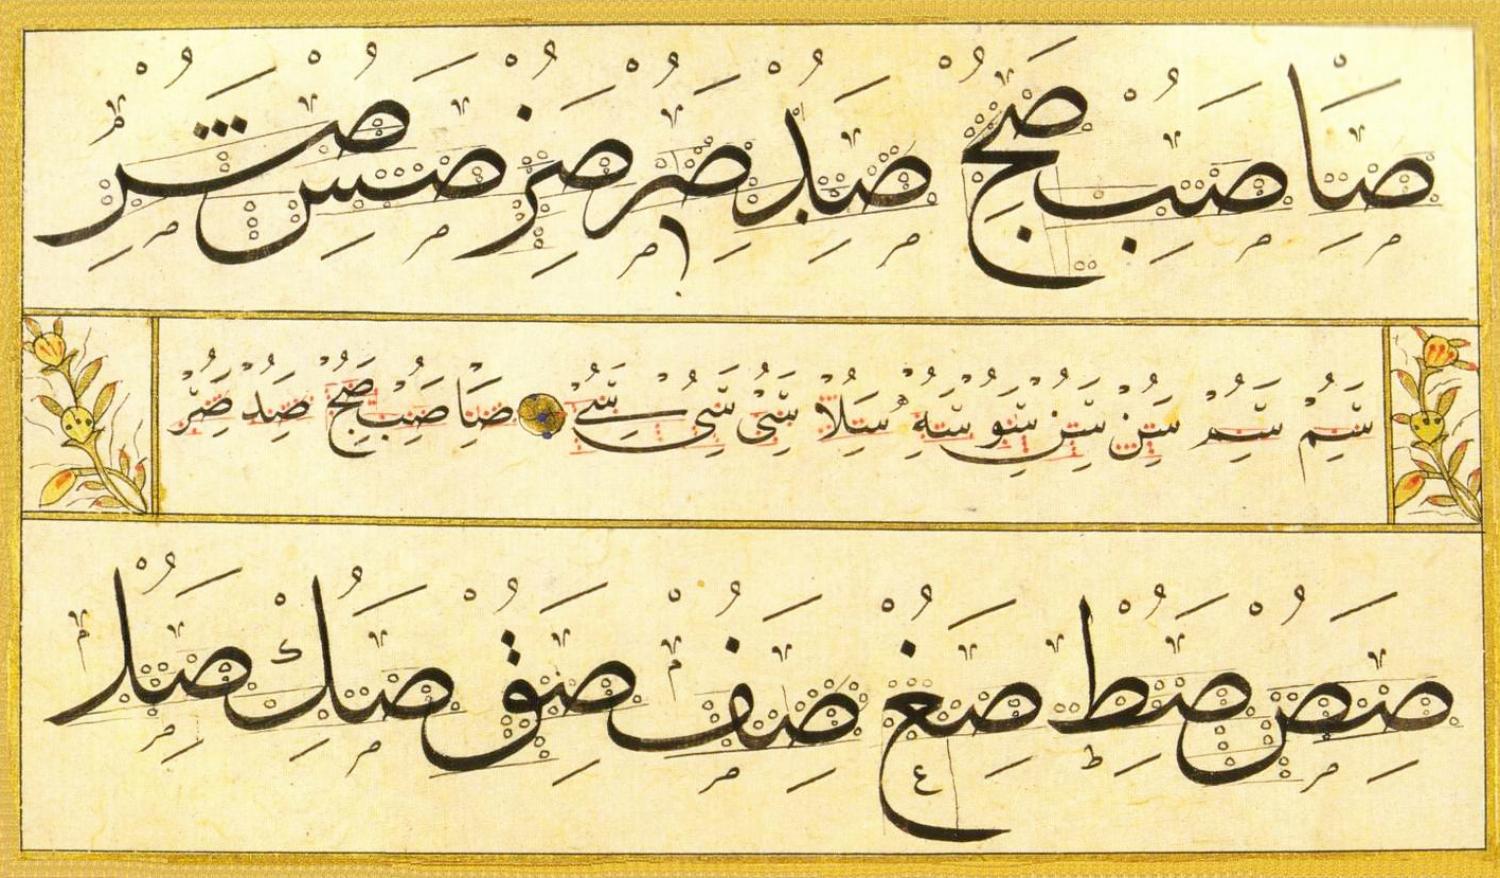 صا صب صج صد صر صز صس صش
سم سم سن سن سو سه سلا سى سى سے صا صب صج صد صر
صص صط صغ صف صق صك صل